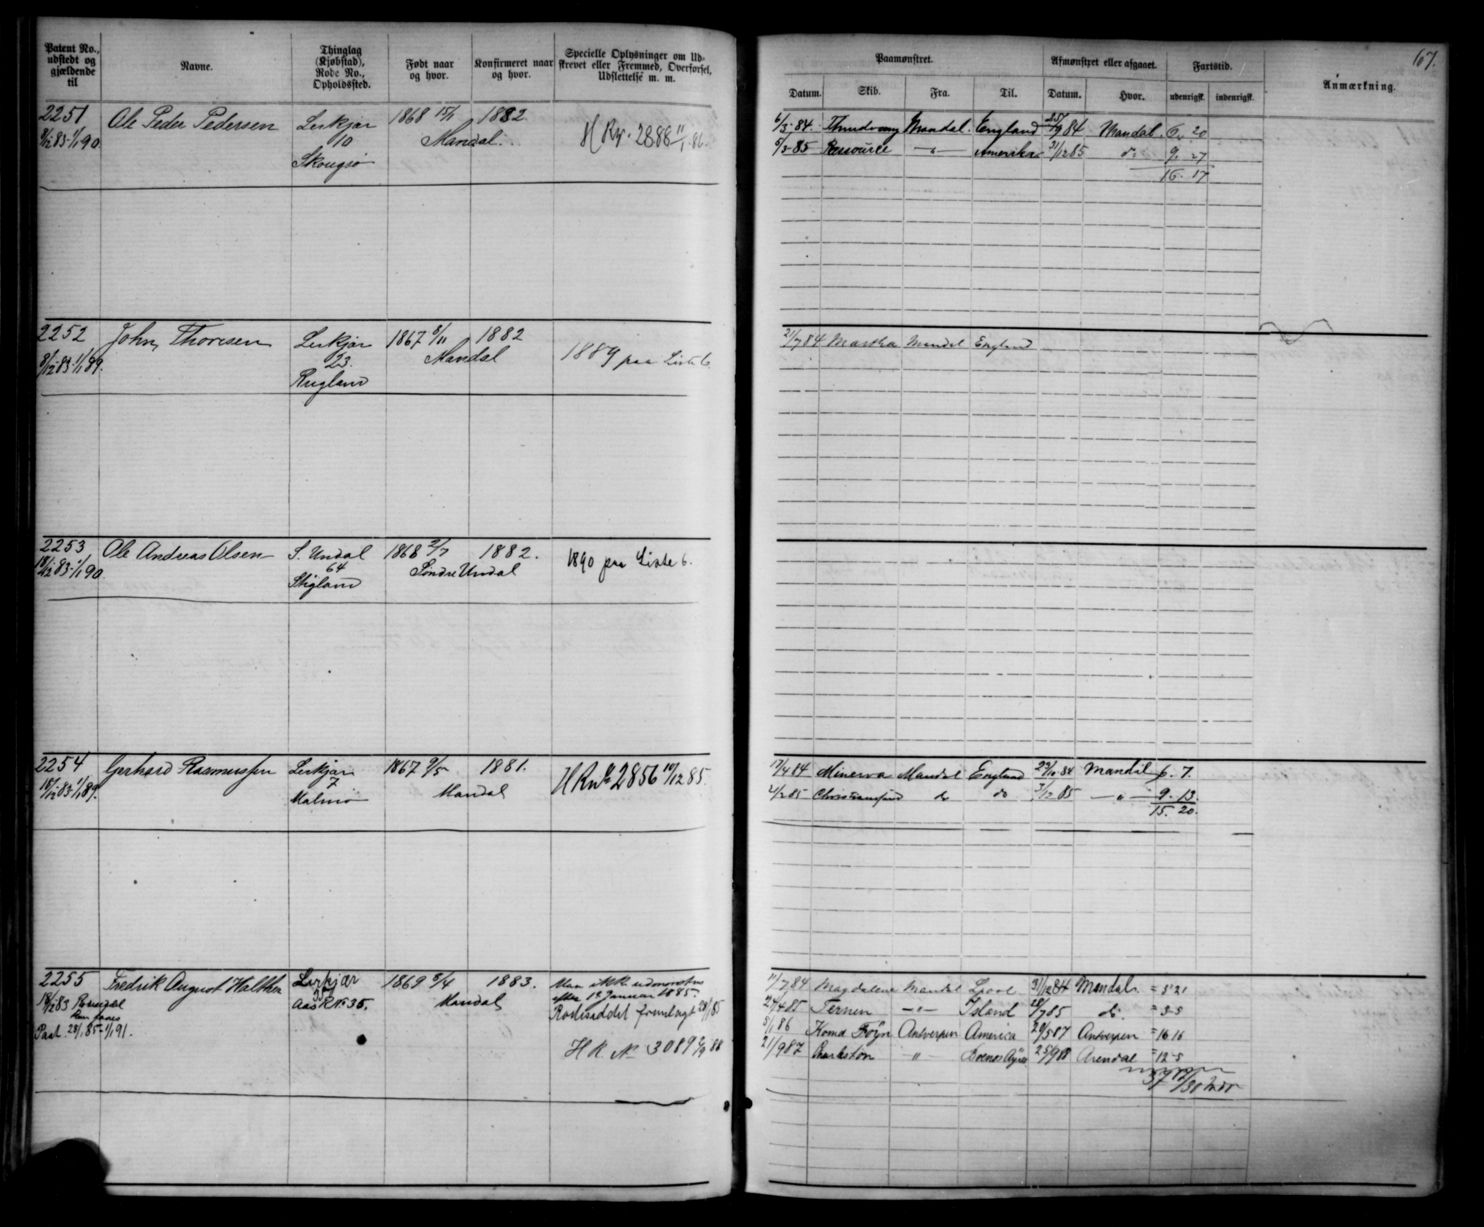 Patent No., udstedt og gjældende til
Navne.
Thinglag (Kjøbstad), Rode No., Opholdssted.
Født naar og hvor.
Konfirmeret naar og hvor.
Specielle Oplysninger om Udskrevet eller Fremmed, Overførsel, Udslettelse m. m.
Paamønstret.
Afmønstret eller afgaaet.
Fartstid.
Anmærkning.
67.
Datum. Skib. Fra. Til. Datum. Hvor. udenrigsk. indenrigsk.
2251 Ole Peder Pedersen Leikjær 1868 15/1 1882
8/12 83-1/1 90 10 Mandal.
Skougsø
H Rr. 2888 11/1 86.
6/3 84 Thrudvang Mandal England 25/9 84 Mandal 6. 20
5/3 85 Ressource —"— Amerika 31/12 85 do 9. 27
16. 17
2252 John Thoresen Leikjær 1867 8/11 1882
8/12 83-1/1 89. 23. Mandal
Rugland
1889 paa Liste 6
21/7 84 Martha Mandal England
2253 Ole Andreas Olsen S. Undal 1868 2/7 1882.
18/12 83-1/1 90 64 Søndre Undal
Stigland
1890 paa Liste 6.
2254 Gerhard Rasmussen Leikjær 1867 9/5 1881.
18/12 83-1/1 89. 7 Mandal
Malmø
H R No 2856 10/12 85.
17/4 84 Minerva Mandal England 23/10 84 Mandal 6. 7.
4/2 85 do do 3/12 85 —"— 9. 13
15. 20.
2255 Fredrik August Halthen Leikjær 1869 5/4 1883.
18/12 83 Mandal
Aas R No 35.
Pat. 29/1 85-1/1 91.
Kan ikke udmønstres
efter 1ste Januar 1885.
Rodeseddel fremlagt 29/1 85
H R No 3089 88
11/7 84 Magdalene Mandal 31/12 84 Mandal = 5 21
24/4 85 Ternen —"— Island 28/7 85 do. = 3-5
5/1 86 Komd Føyn Antwerpen America 20/5 87 Antwerpen = 16 16
21/9 87 " Buenos Ayres 88 Arendal = 12-5